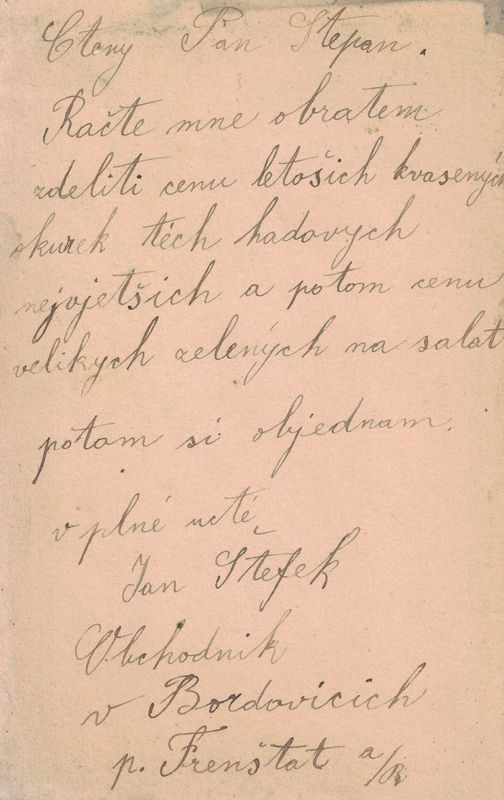 Cteny Pan Stepan.
Račte mne obratem
zdeliti cenu letošich kvasených
okurek těch hadovych
nejvjetšich a potom cenu
velikych zelených na salat
potom si objednam.
v plné uctě
Jan Štefek
Obchodnik
v Bordovicich
p. Frenštat a/R